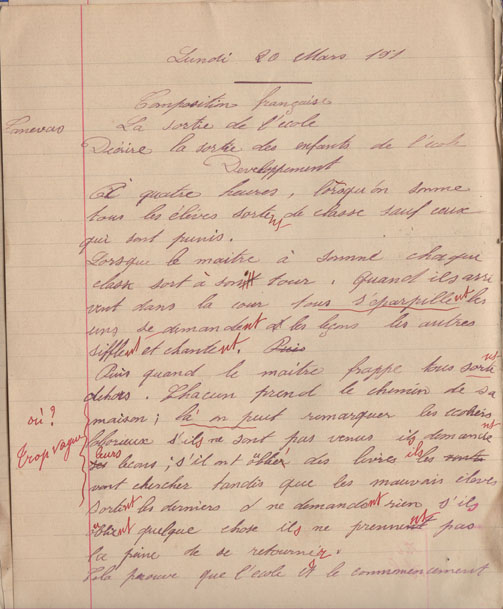 Lundi 20 Mars 191
Composition française
Canevas La sortie de l'école
Décrire la sortie des enfants de l'école
Développement
A quatre heures, lorsqu'on sonne
tous les élèves sortent de classe sauf ceux
qui sont punis.
Lorsque le maître à sonné chaque
classe sort à son tour. Quand ils arri
vent dans la cour tous s'éparpillent les
uns se demandent les leçons les autres
sifflent et chantent. Puis
Puis quand le maître frappe tous sortent
dehors. Chacun prend le chemin de sa
où? maison; là on peut remarquer les écoliers
Trop vague laboreux s'ils ne sont pas venus ils demandent
leurs leçons; s'il ont oublié des livres ils les
vont chercher tandis que les mauvais élèves
sortent les derniers ne demandent rien s'ils
oublient quelque chose ils ne prennent pas
la peine de se retourner.
Cela prouve que l'école est le commencement